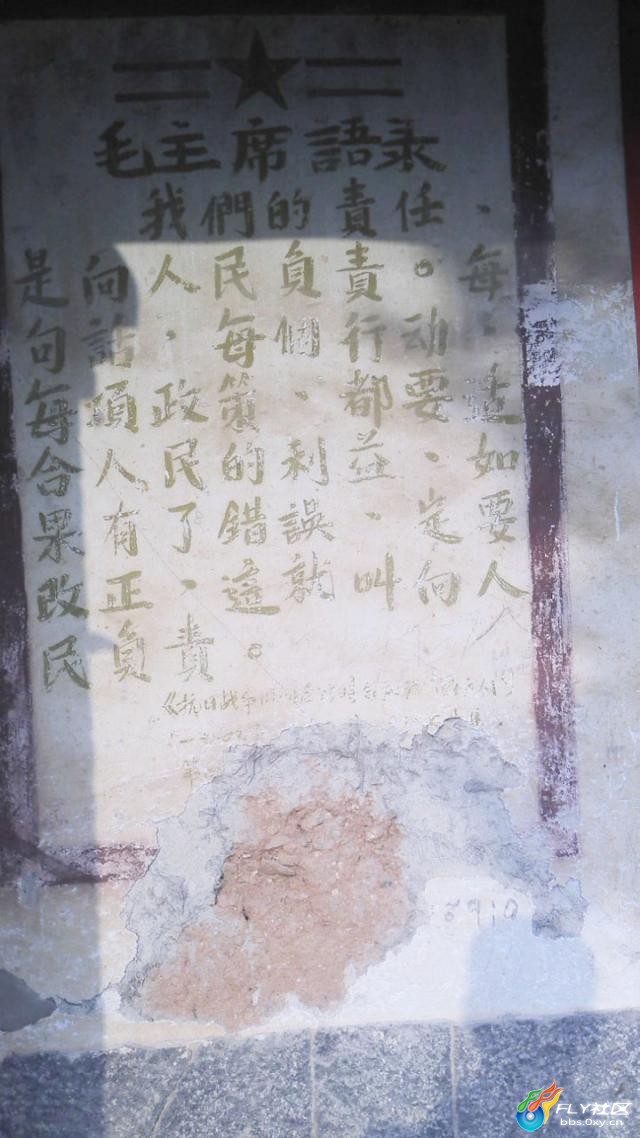 毛主席語录
我們的責任、
是向人民負責。每
句話、每個行动、
每項政策、都要适
合人民的利益、如
果有了錯誤、定要
改正、這就叫向人
民負責。
《抗日战争
FLY社区
bbs.0xy.cn